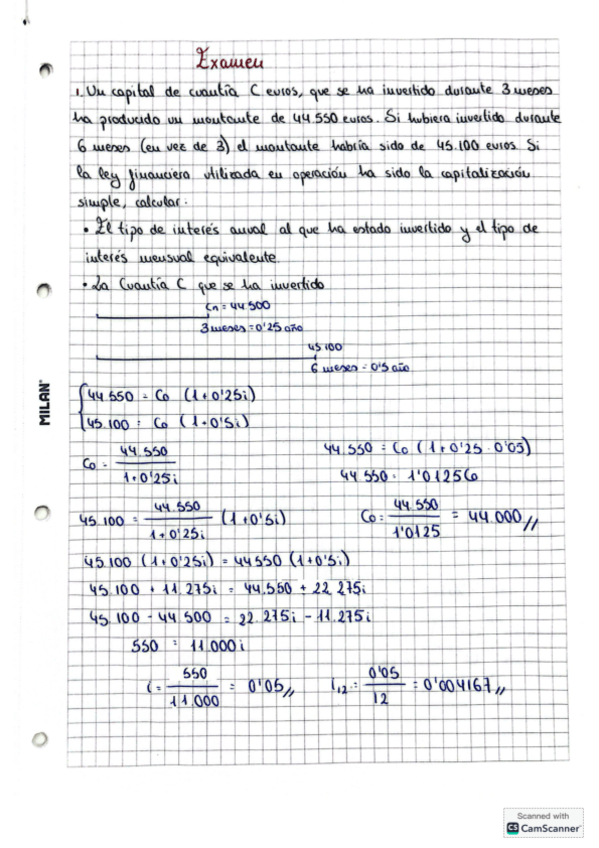 Examen
1. Un capital de cuantía C euros, que se ha invertido durante 3 meses
ha producido un montante de 44 550 euros. Si hubiera invertido durante
6 meses (en vez de 3) el montante habría sido de 45.100 euros. Si
la ley financiera utilizada en operación ha sido la capitalización
simple, calcular:
• El tipo de interés anual al que ha estado invertido y el tipo de
interés mensual equivalente.
• La Cuantía C que se ha invertido
Cn = 44 500
3 meses = 0'25 año
45 100
6 meses = 0'5 año
44 550 = Co (1+0'25i)
45.100 = Co (1+0'5i)
Co = 44.550 / 1+0'25i
45.100 = 44.550 / 1+0'25i (1+0'5i)
45.100 (1+0'25i) = 44550 (1+0'5i)
45.100 + 11.275i = 44.550 + 22.275i
45.100 - 44.500 = 22.275i - 11.275i
550 = 11.000i
i = 550 / 11.000 = 0'05//
44.550 = Co (1+0'25 · 0'05)
44 550 = 1'0125Co
Co = 44.550 / 1'0125 = 44.000//
i12 = 0'05 / 12 = 0'004167//
MILAN
Scanned with
CS CamScanner